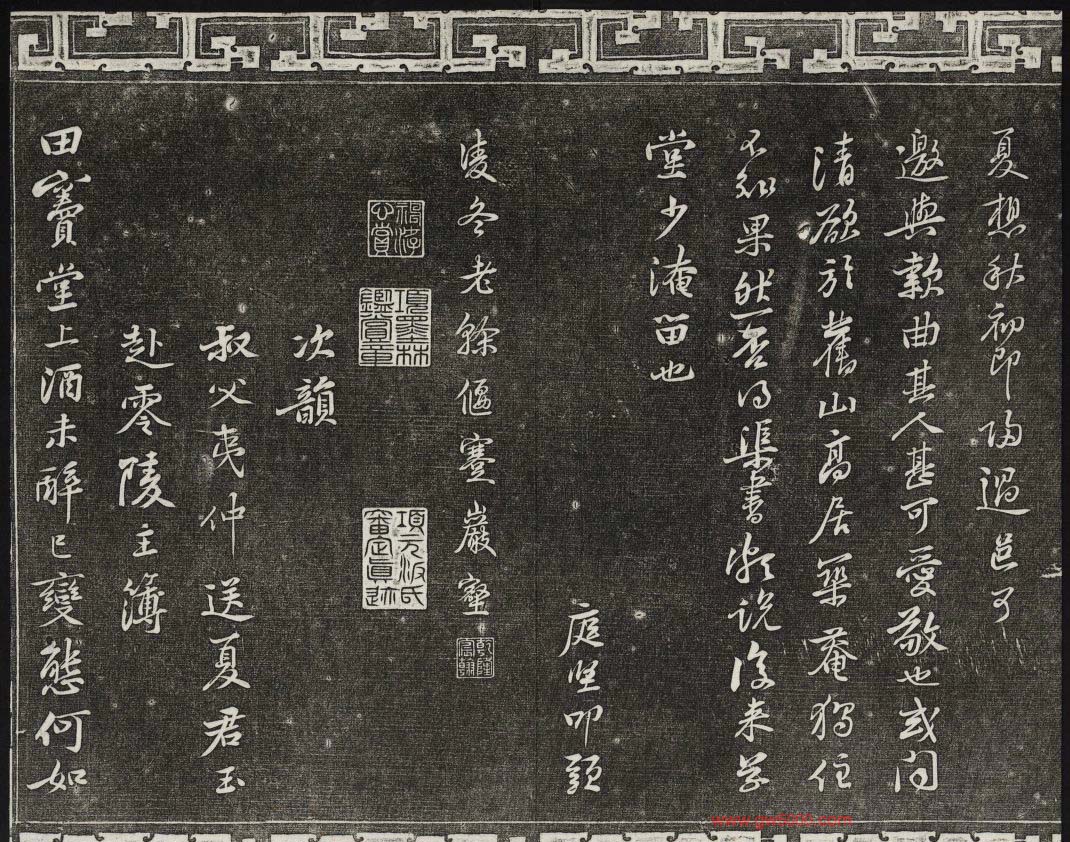 夏想秋初即歸過邑可
邀與款曲其人甚可愛敬也或問
清欲於舊山高居築菴獨住
不知果然否得渠書頗說復來草
堂少淹留也
庭堅叩頭
凌冬老榦偃蹇巖壑
乾隆宸翰
項墨林鑑賞章
項元汴氏審定真迹
次韻
叔父夷仲送夏君玉
赴零陵主簿
田竇堂上酒未醉已變態何如